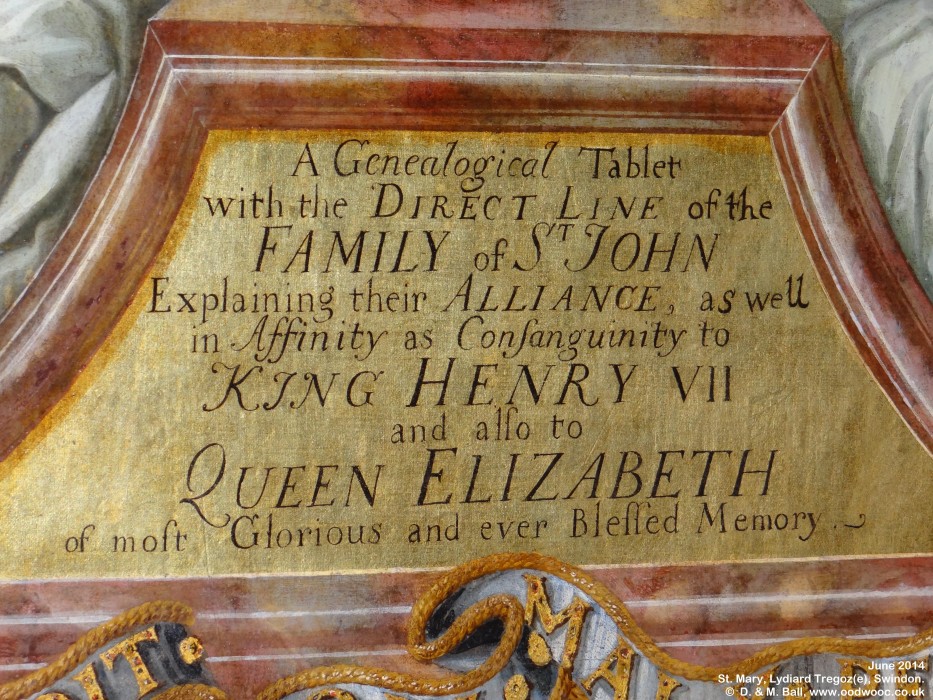 A Genealogical Tablet
with the DIRECT LINE of the
FAMILY of Sᵀ JOHN
Explaining their ALLIANCE, as well
in Affinity as Conſanguinity to
KING HENRY VII
and alſo to
QUEEN ELIZABETH
of moſt Glorious and ever Bleſſed Memory.
June 2014
St. Mary, Lydiard Tregoz(e), Swindon.
© D. & M. Ball, www.oodwooc.co.uk